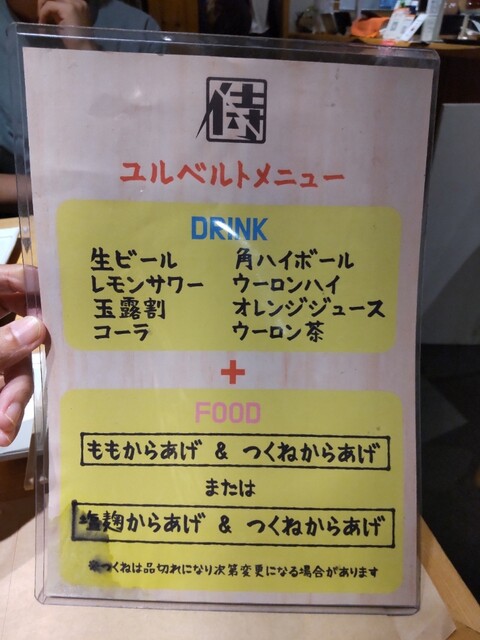 侍
ユルベルトメニュー
DRINK
生ビール 角ハイボール
レモンサワー ウーロンハイ
玉露割 オレンジジュース
コーラ ウーロン茶
+
FOOD
ももからあげ & つくねからあげ
または
塩麹からあげ & つくねからあげ
※つくねは品切れになり次第変更になる場合があります